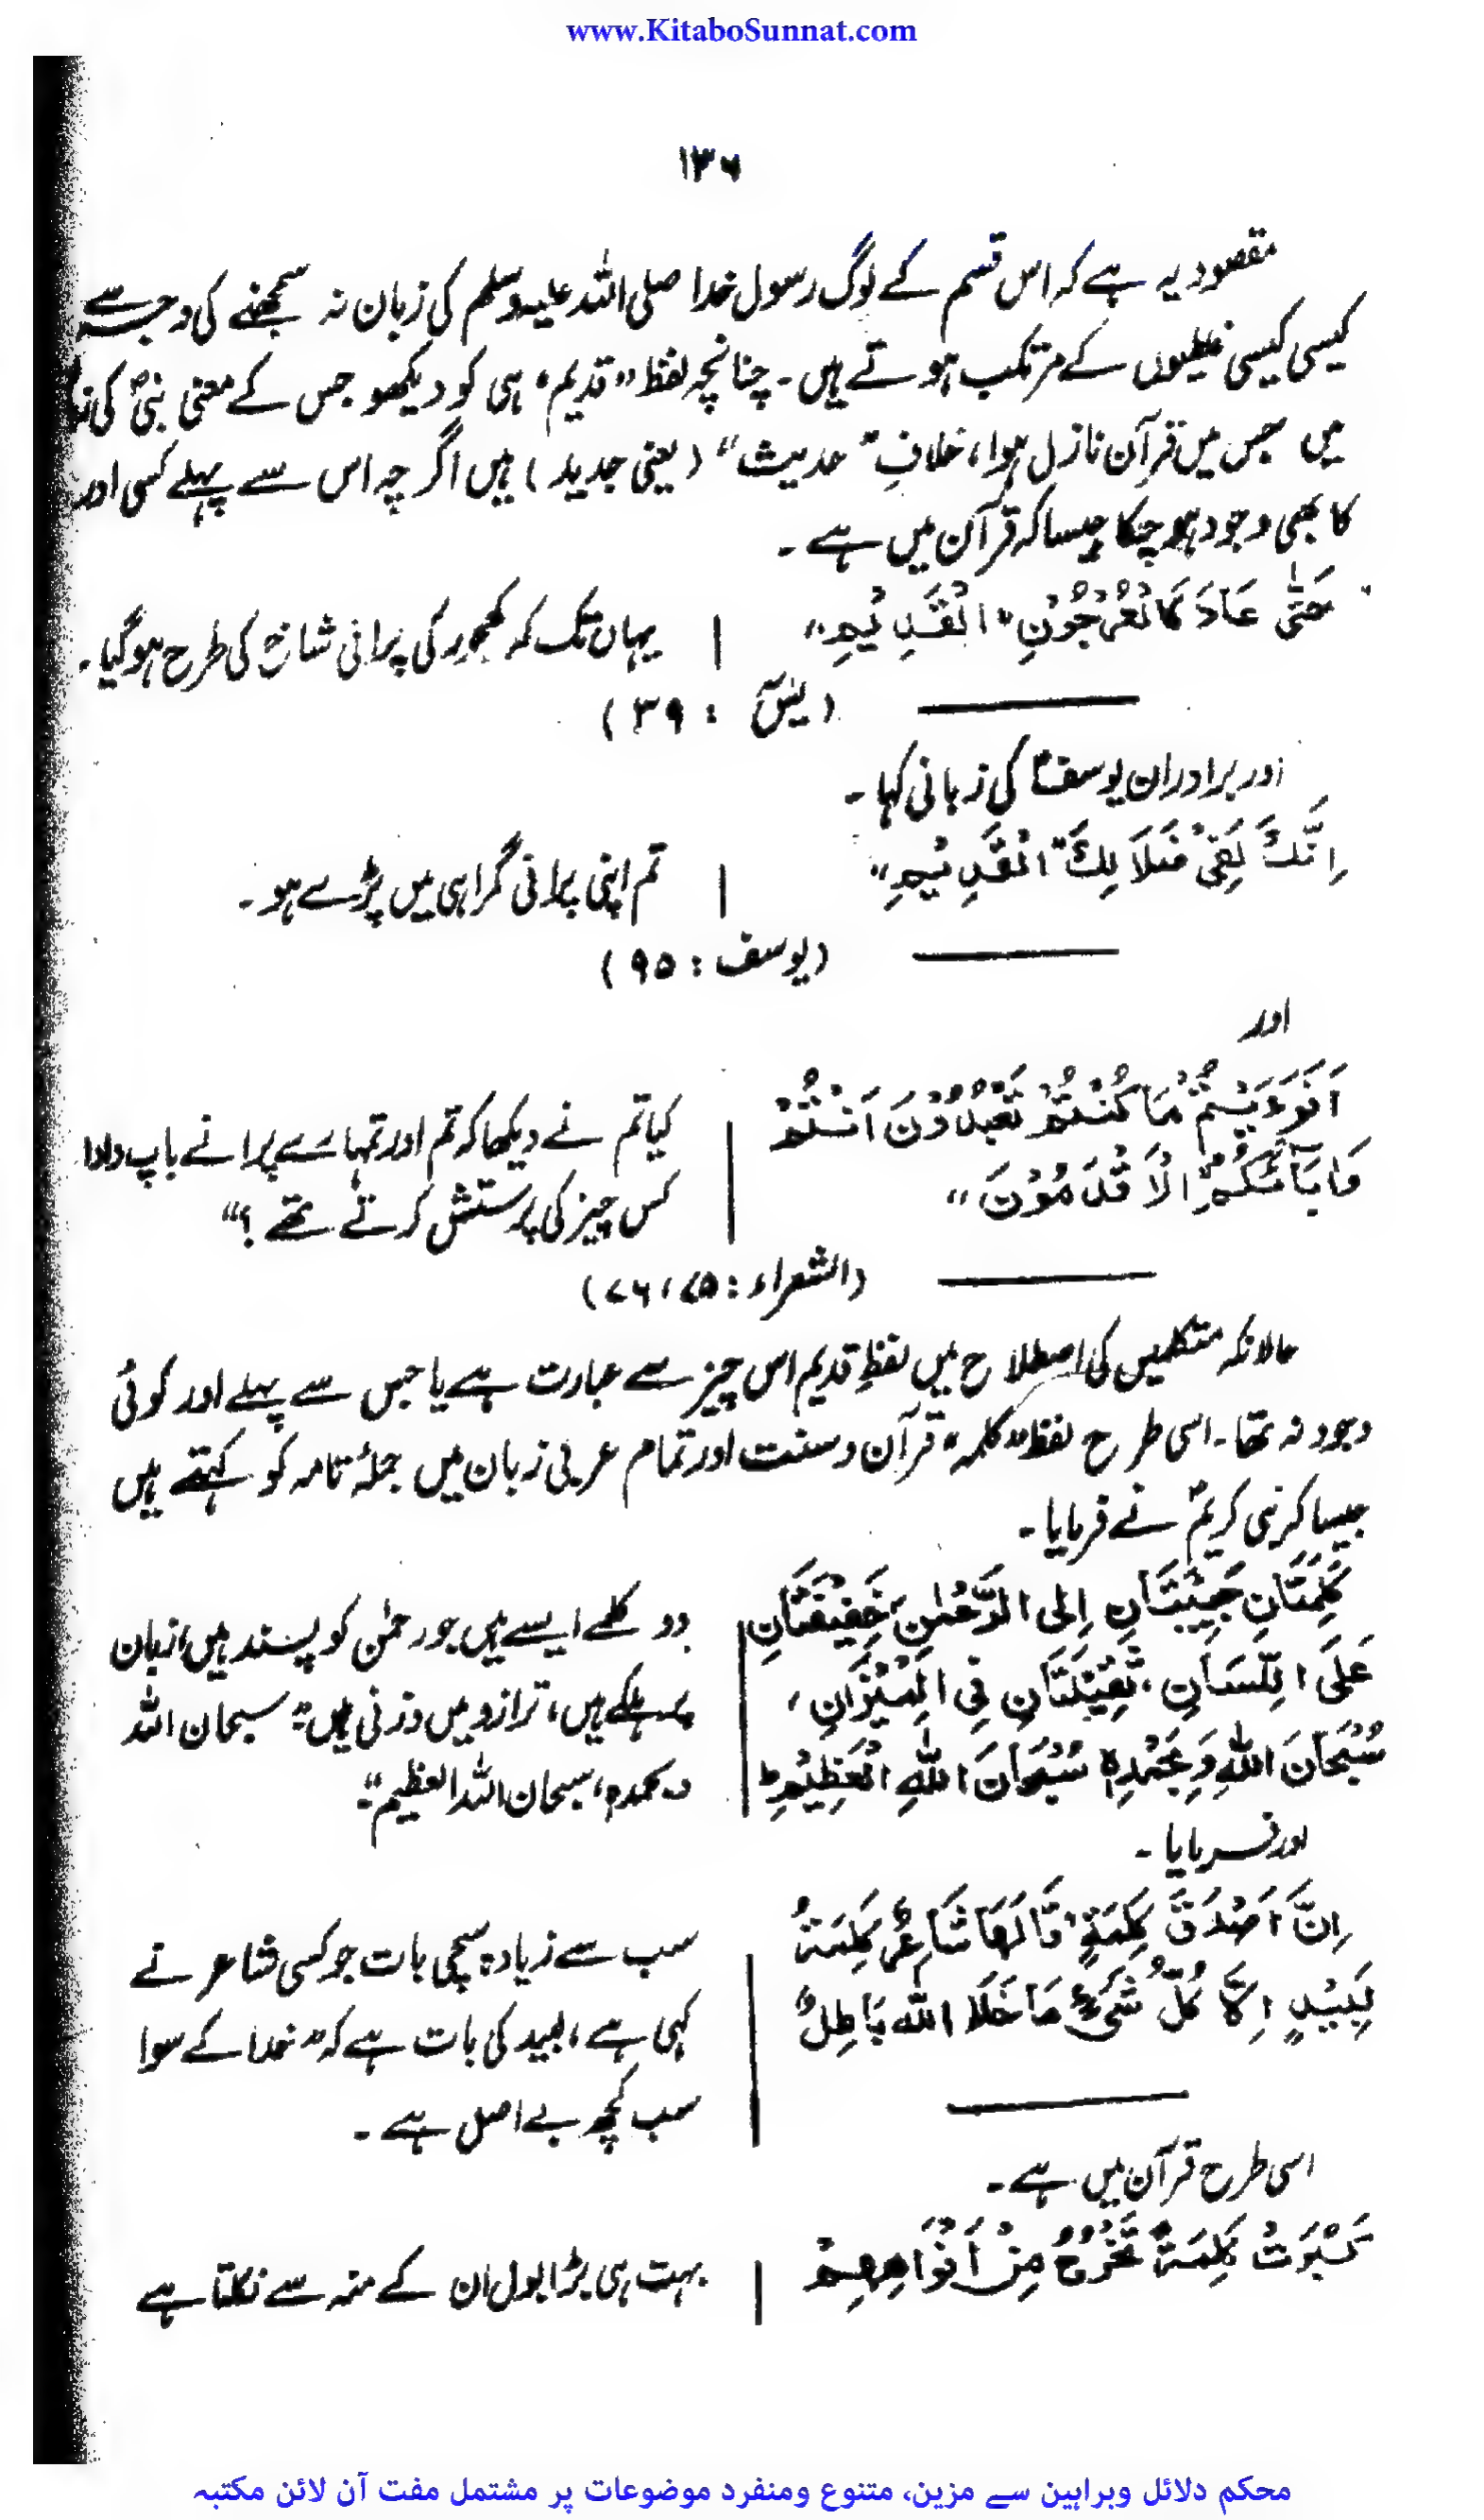 www.KitaboSunnat.com
۱۳۶
مقصود یہ ہے کہ اس قسم کے لوگ رسول خدا صلی اللہ علیہ وسلم کی زبان نہ سمجھنے کی وجہ سے
کیسی کیسی غلطیوں کے مرتکب ہوتے ہیں۔ چنانچہ لفظ "قدیم" ہی کو دیکھو جس کے معنی نبیؐ کی
میں جس میں قرآن نازل ہوا، خلافِ "حدیث" (یعنی جدید) ہیں اگر چہ اس سے پہلے کسی اور
کا بھی وجود ہو چکا جیسا کہ قرآن میں ہے۔
حَتّٰی عَادَ کَالْعُرْجُوْنِ "الْقَدِیْمِ" | یہاں تک کہ کھجور کی پرانی شاخ کی طرح ہو گیا۔
(یٰسٓ : ۳۹)
اور برادران یوسفؑ کی زبانی کہا۔
اِنَّکَ لَفِیْ ضَلَالِکَ "الْقَدِیْمِ" | تم اپنی پرانی گمراہی میں پڑے ہو۔
(یوسف : ۹۵)
اور
اَفَرَءَیْتُمْ مَا کُنْتُمْ تَعْبُدُوْنَ اَنْتُمْ | کیا تم نے دیکھا کہ تم اور تمہارے پرانے باپ دادا
وَاٰبَآئُکُمُ الْاَقْدَمُوْنَ" | کس چیز کی پرستش کرتے تھے ؟"
(الشعراء : ۷۵، ۷۶)
حالانکہ متکلمین کی اصطلاح میں لفظِ قدیم اس چیز سے عبارت ہے یا جس سے پہلے اور کوئی
وجود نہ تھا۔ اسی طرح لفظ "کلمہ" قرآن و سنت اور تمام عربی زبان میں جملۂ تامہ کو کہتے ہیں
جیسا کہ نبی کریمؐ نے فرمایا۔
کَلِمَتَانِ حَبِیْبَتَانِ اِلی الرَّحْمٰنِ، خَفِیْفَتَانِ | دو کلمے ایسے ہیں جو رحمٰن کو پسند ہیں، زبان
عَلَی اللِّسَانِ، ثَقِیْلَتَانِ فِی الْمِیْزَانِ، | پر ہلکے ہیں، ترازو میں وزنی ہیں: سبحان اللہ
سُبْحَانَ اللّٰهِ وَبِحَمْدِہٖ سُبْحَانَ اللّٰهِ الْعَظِیْمِ ط | وبحمدہ، سبحان اللہ العظیم"۔
اور فرمایا۔
اِنَّ اَصْدَقَ کَلِمَةٍ قَالَهَا شَاعِرٌ کَلِمَةُ | سب سے زیادہ سچی بات جو کسی شاعر نے
لَبِیْدٍ اَلَا کُلُّ شَیْءٍ مَا خَلَا اللّٰه بَاطِلٌ | کہی ہے، لبید کی بات ہے کہ "خدا کے سوا
سب کچھ بے اصل ہے۔
اسی طرح قرآن میں ہے۔
کَبُرَتْ کَلِمَةً تَخْرُجُ مِنْ اَفْوَاهِهِمْ | بہت ہی بڑا بول ان کے منہ سے نکلتا ہے
محکم دلائل وبراہین سے مزین، متنوع ومنفرد موضوعات پر مشتمل مفت آن لائن مکتبہ